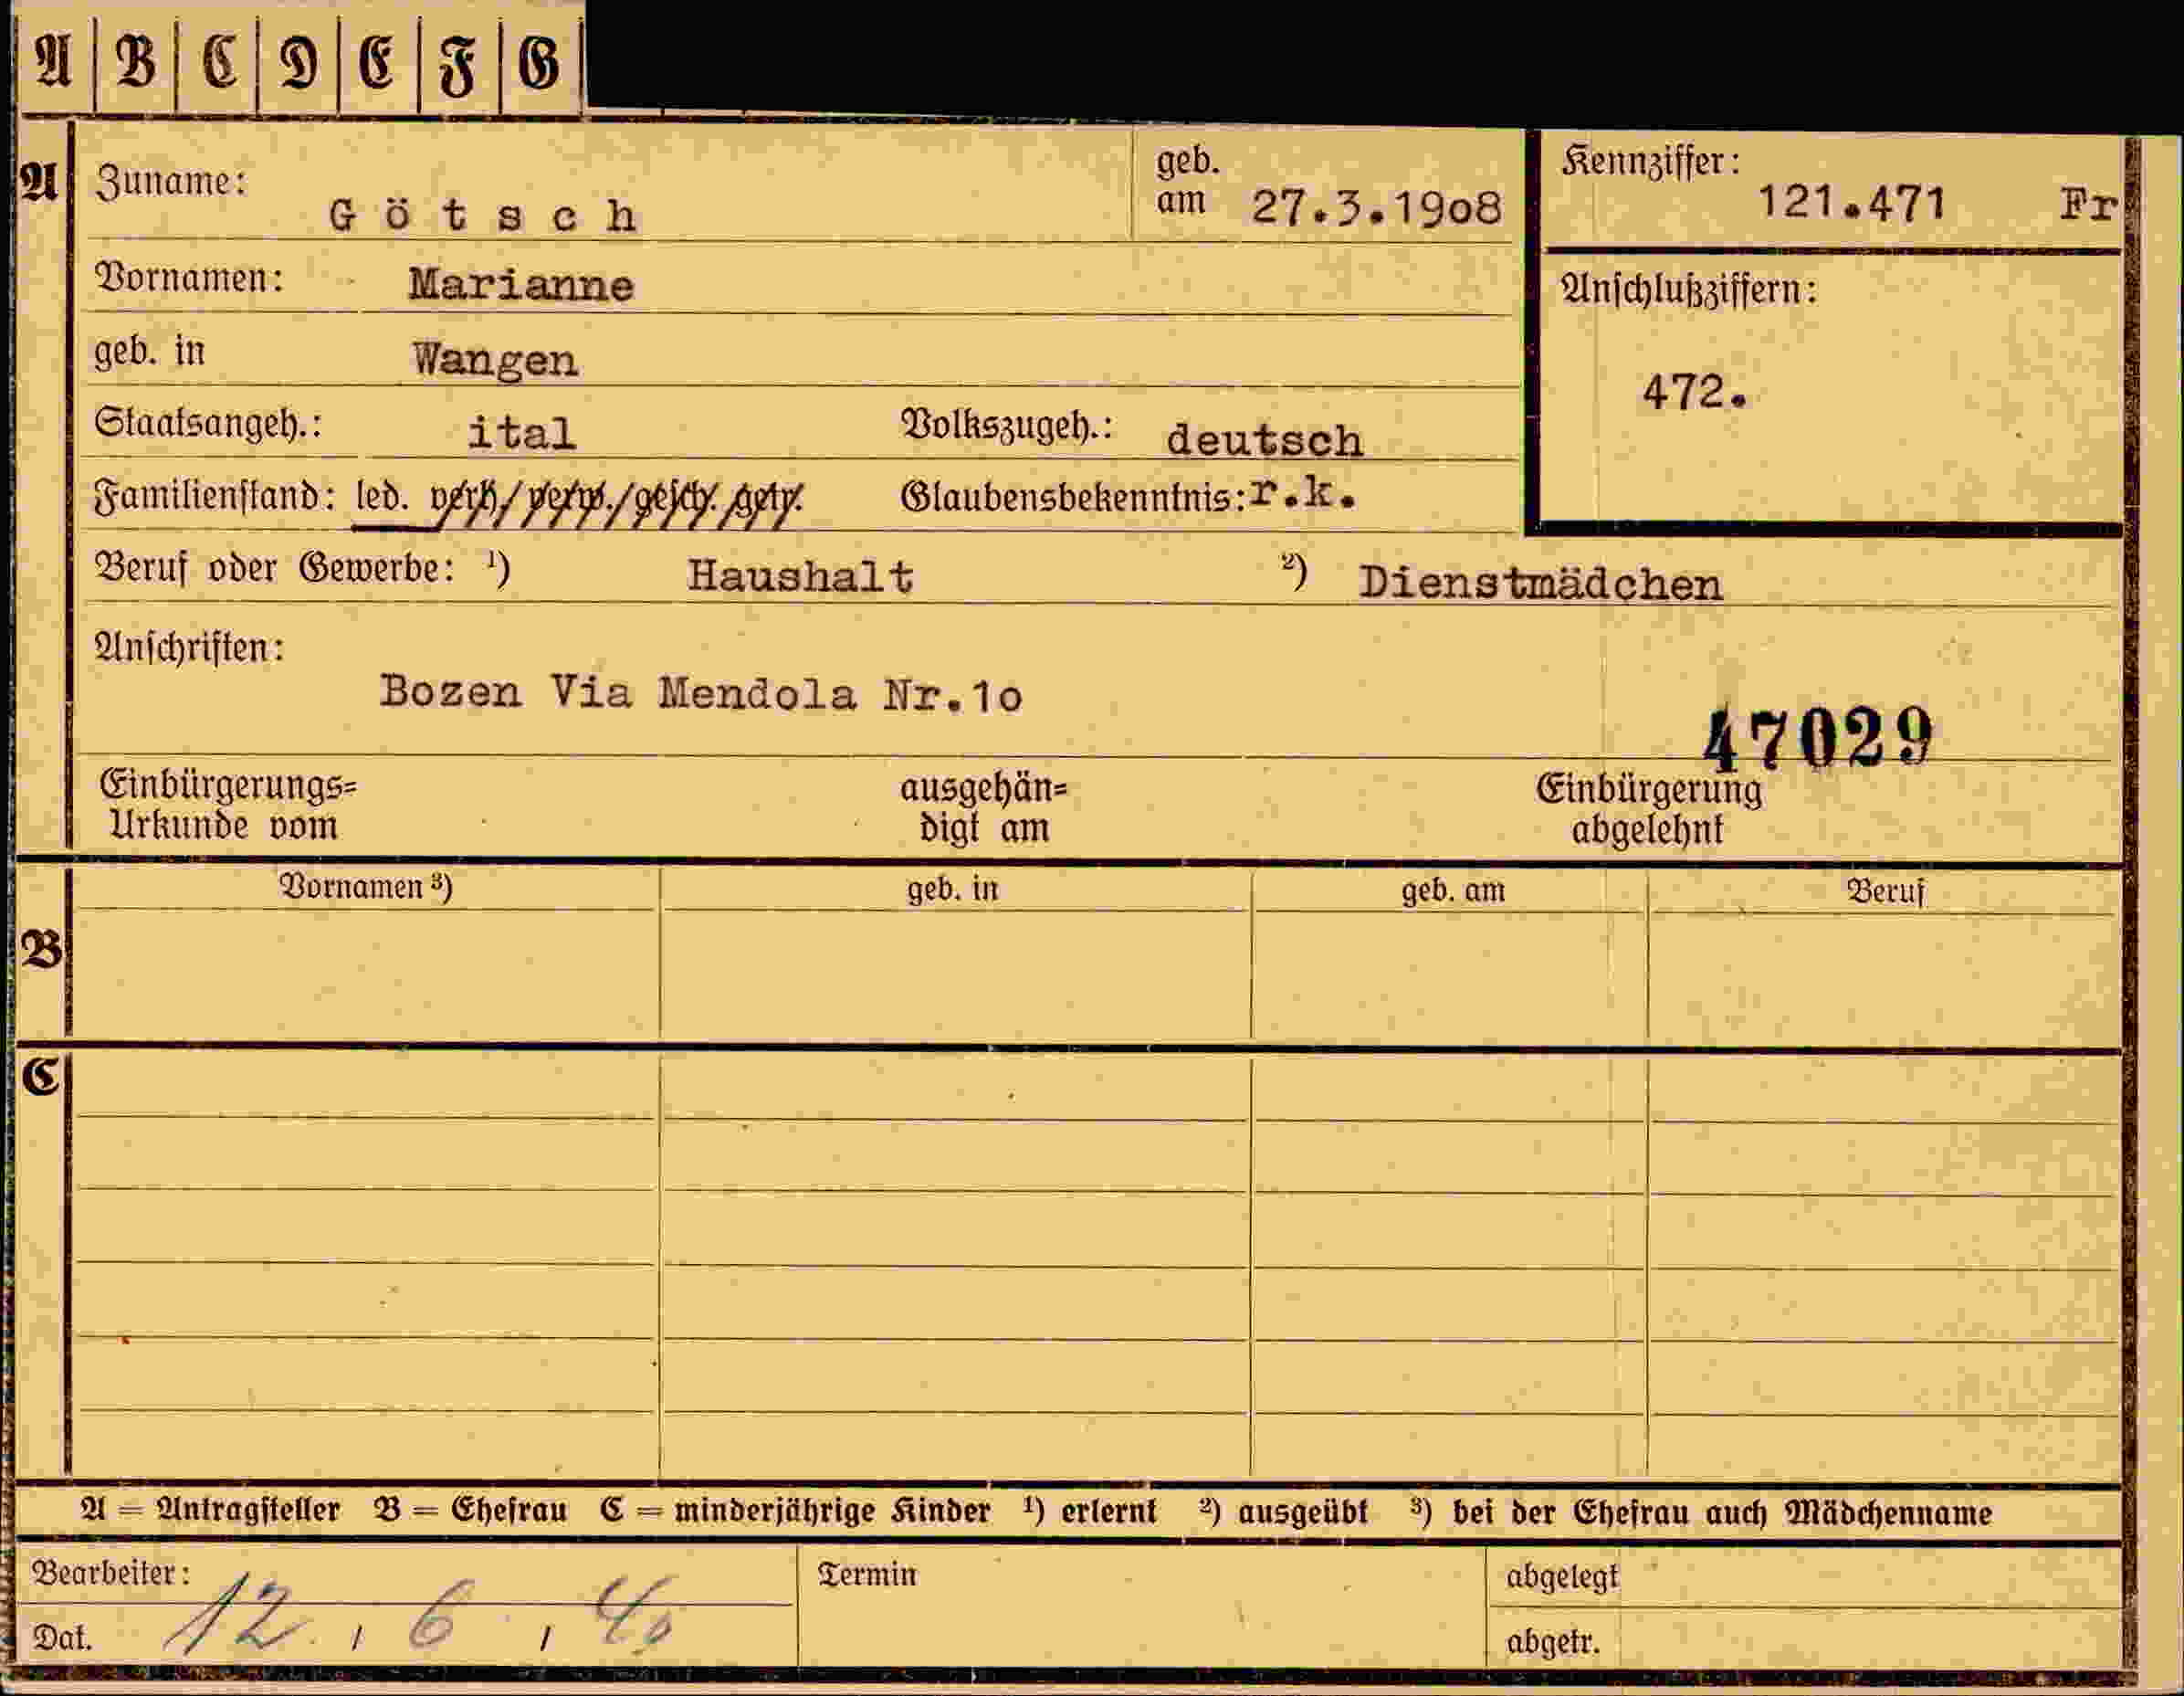 A B C D E F G
A Zuname: Götsch geb. am 27.3.19o8 Kennziffer: 121.471 Fr
Vornamen: Marianne Anschlußziffern:
geb. in Wangen 472.
Staatsangeh.: ital Volkszugeh.: deutsch
Familienstand: led. verh./verw./gesch. getr. Glaubensbekenntnis: r.k.
Beruf oder Gewerbe: ¹) Haushalt ²) Dienstmädchen
Anschriften:
Bozen Via Mendola Nr.1o
47029
Einbürgerungs= ausgehän= Einbürgerung
Urkunde vom digt am abgelehnt
Vornamen ³) geb. in geb. am Beruf
B
C
A = Antragsteller B = Ehefrau C = minderjährige Kinder ¹) erlernt ²) ausgeübt ³) bei der Ehefrau auch Mädchenname
Bearbeiter: Termin abgelegt
Dat. 12. / 6 / 40 abgetr.